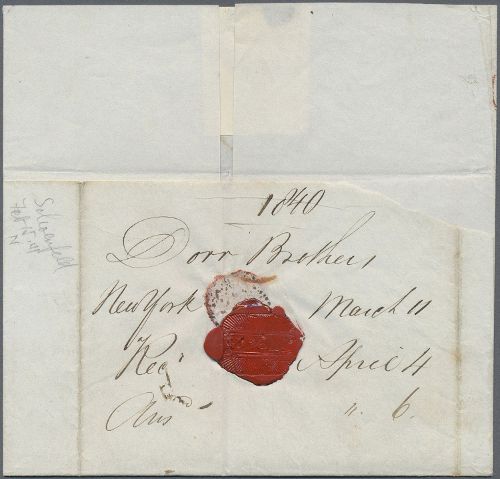 1840
Dorr Brothers
New York March 11
Recd April 4
Ans " 6.
Schoenfeld
Feb 18
N